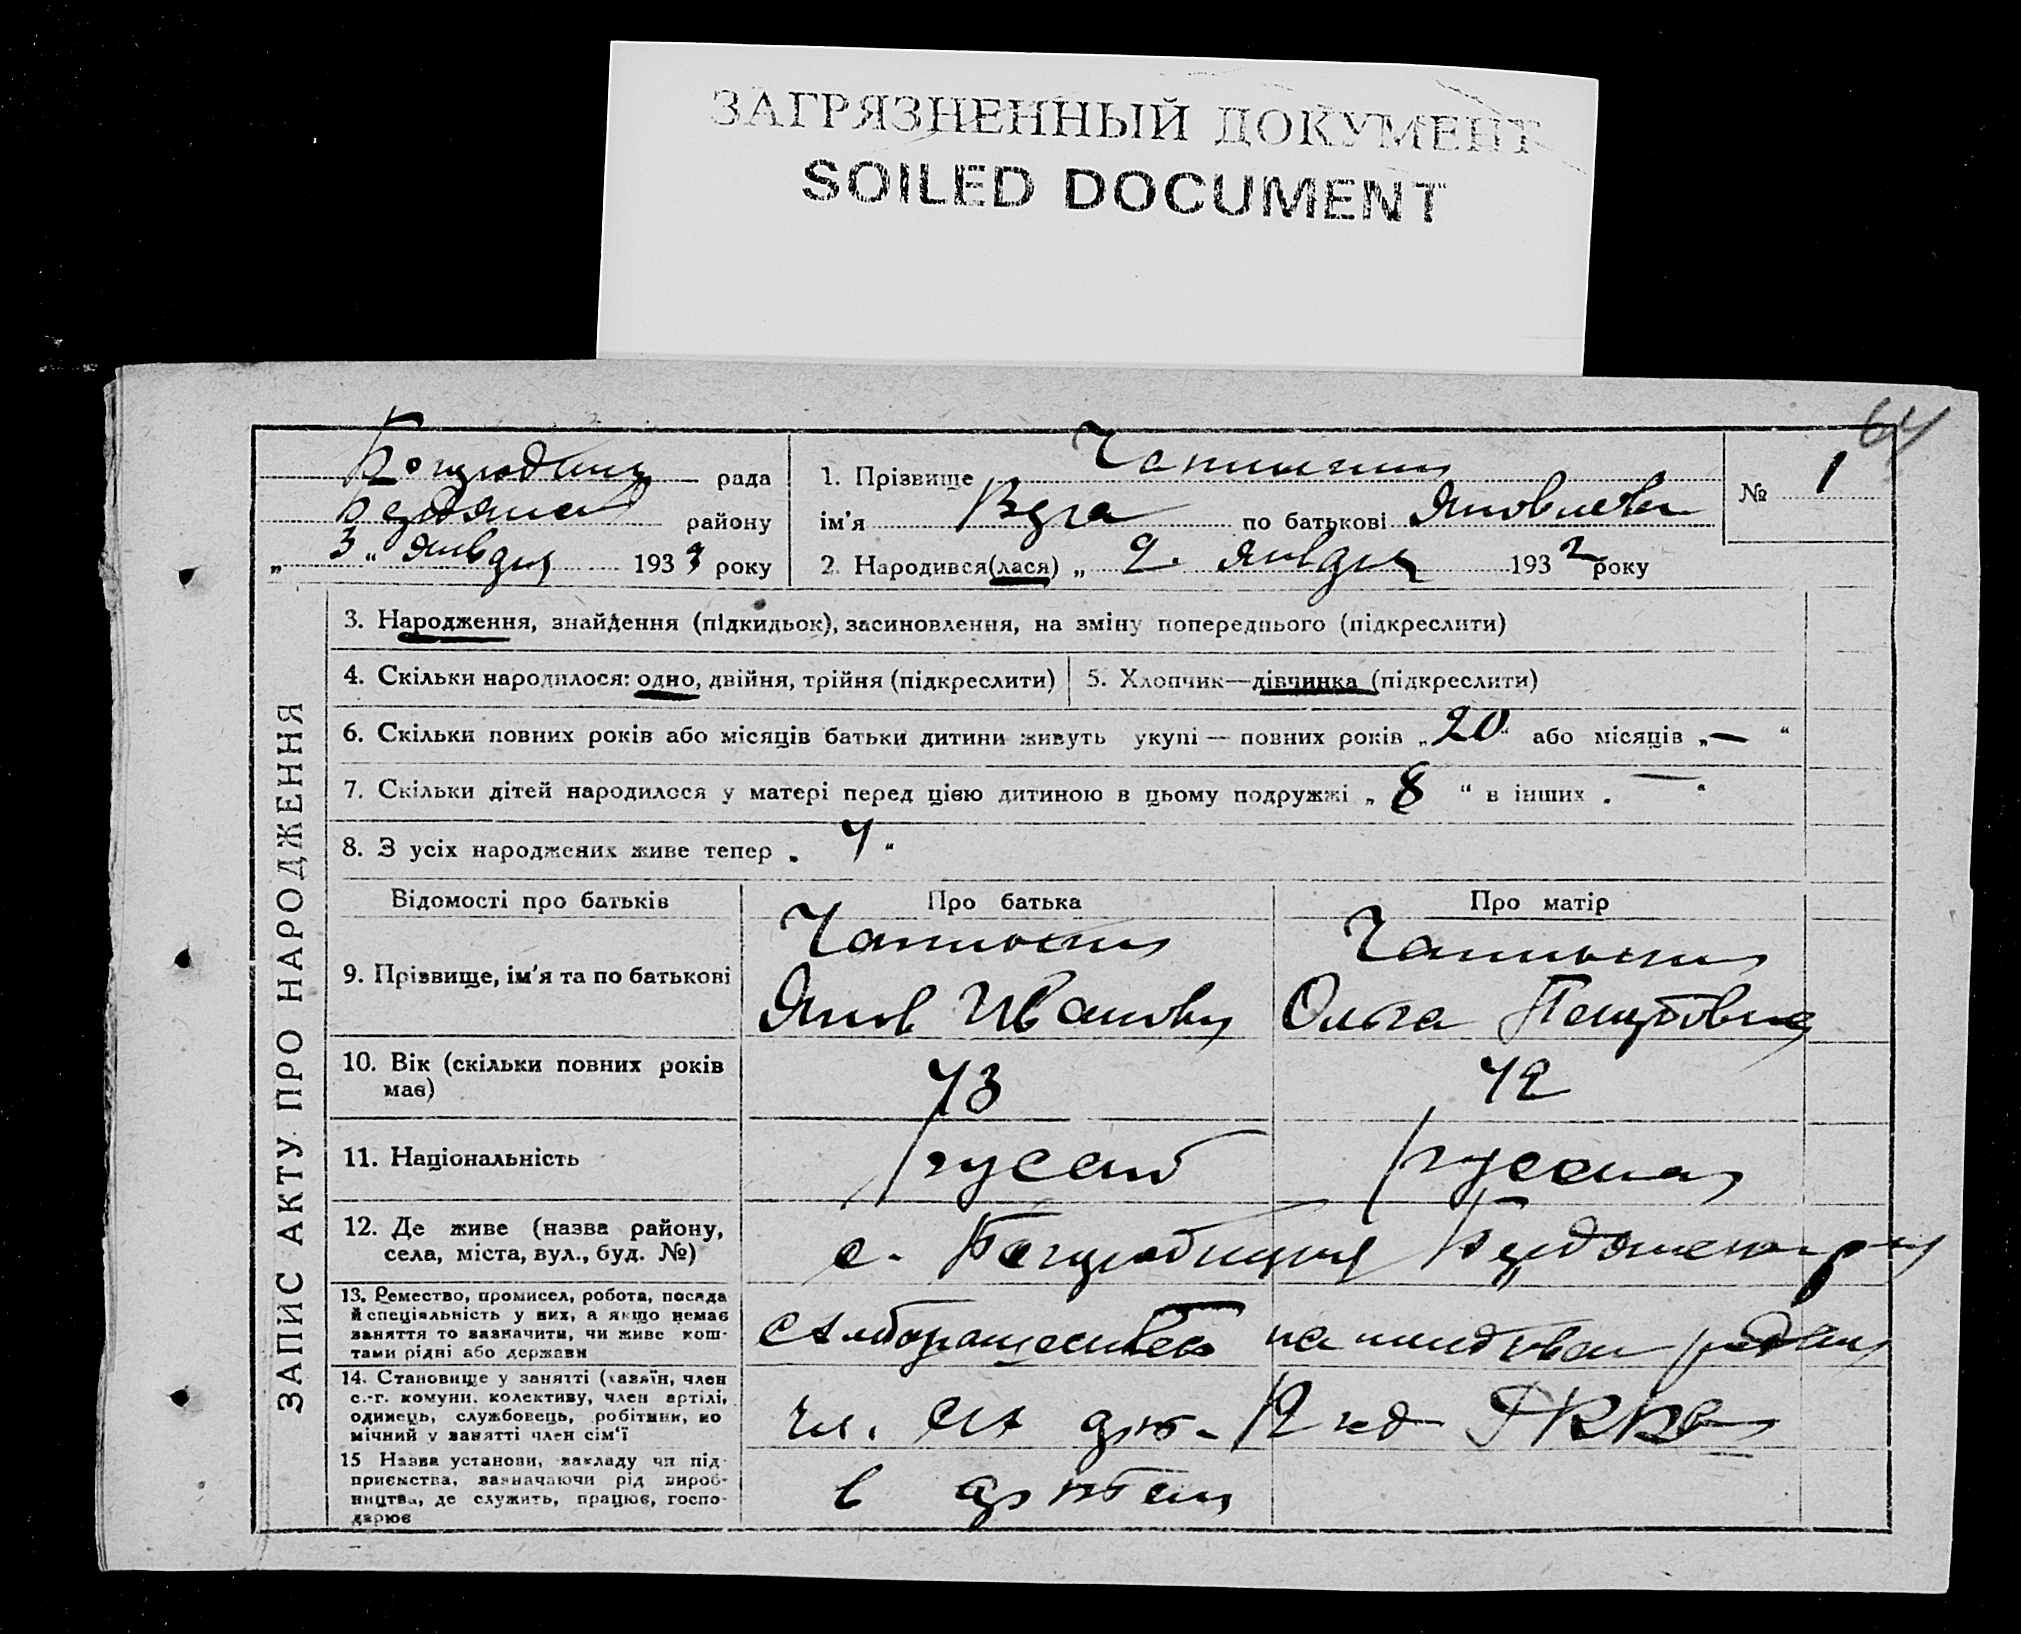 ЗАГРЯЗНЕННЫЙ ДОКУМЕНТ
SOILED DOCUMENT
64
рада
1. Прізвище
№ 1
району
ім'я Вера по батькові Яковлева
„ 3 “ января 1933 року
2. Народився(лася) „ 2. января 1932 року
ЗАПИС АКТУ ПРО НАРОДЖЕННЯ
3. Народження, знайдення (підкидьок), засиновлення, на зміну попереднього (підкреслити)
4. Скільки народилося: одно, двійня, трійня (підкреслити)
5. Хлопчик—дівчинка (підкреслити)
6. Скільки повних років або місяців батьки дитини живуть укупі — повних років „ 20 “ або місяців „ — “
7. Скільки дітей народилося у матері перед цією дитиною в цьому подружжі „ 8 “ в інших „ — “
8. З усіх народжених живе тепер „ 4 “
Відомості про батьків
Про батька
Про матір
9. Прізвище, ім'я та по батькові
Яков Иванович
Ольга
10. Вік (скільки повних років
має)
43
42
11. Національність
русский
русская
12. Де живе (назва району,
села, міста, вул., буд. №)
с.
13. Ремество, промисел, робота, посада
й спеціяльність у них, а якщо немає
заняття то зазначити, чи живе кош-
тами рідні або держави
14. Становище у занятті (хазяїн, член
с.-г. комуни, колективу, член артілі,
одинець, службовець, робітник, по
мічний у занятті член сім'ї
чл.
15 Назва установи, закладу чи під-
приємства, зазначаючи рід вироб-
ництва, де служить, працює, госпо-
дарює
в артели